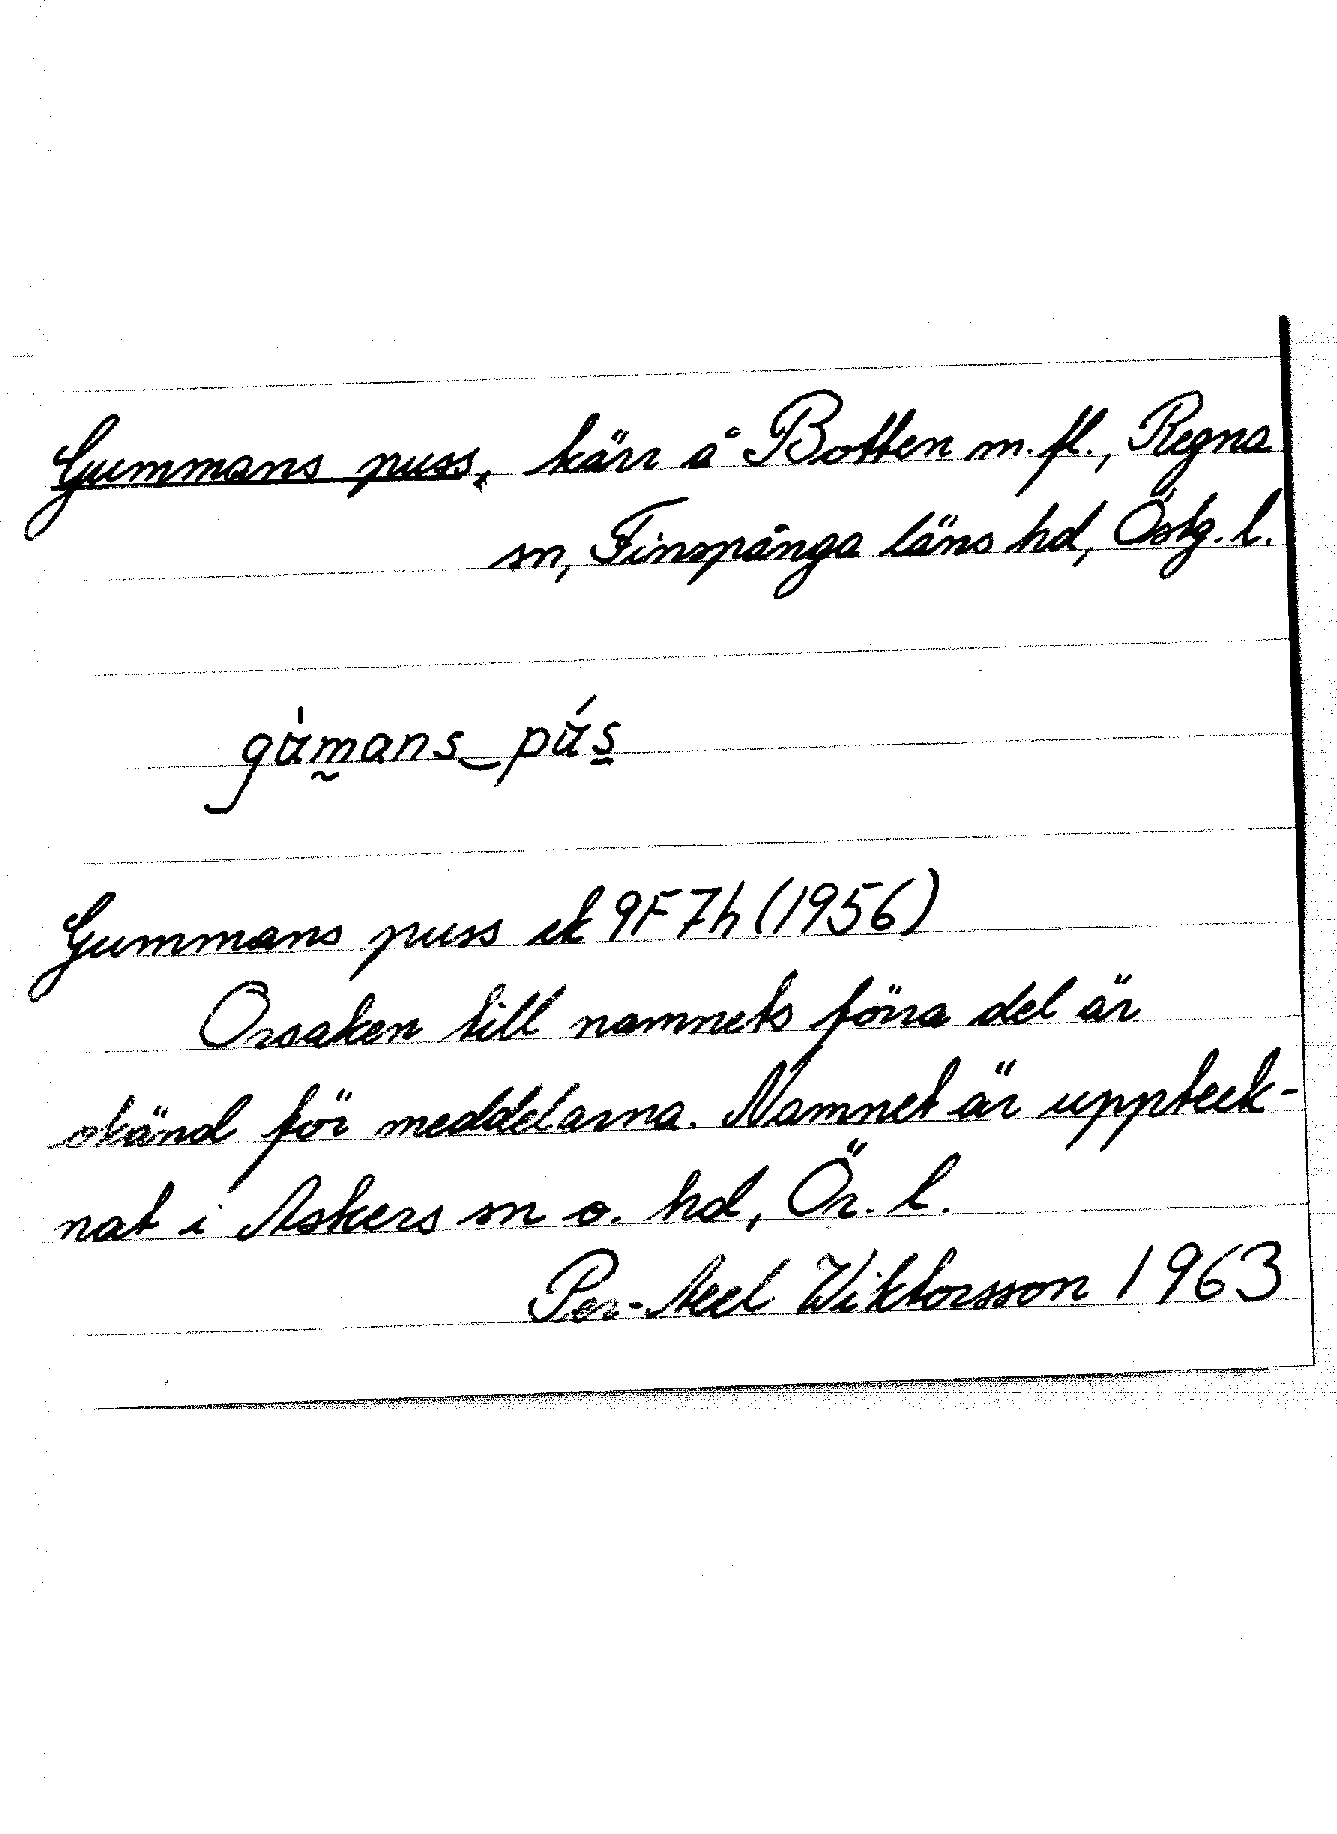 Gummans puss, kärr å Botten m.fl., Regna
sn, Finspånga läns hd, Östg. l.
gu̇mans pús
Gummans puss ek 9F7h (1956)
Orsaken till namnets förra del är
okänd för meddelarna. Namnet är uppteck-
nat i Askers sn o. hd, Ör. l.
Per-Axel Wiktorsson 1963